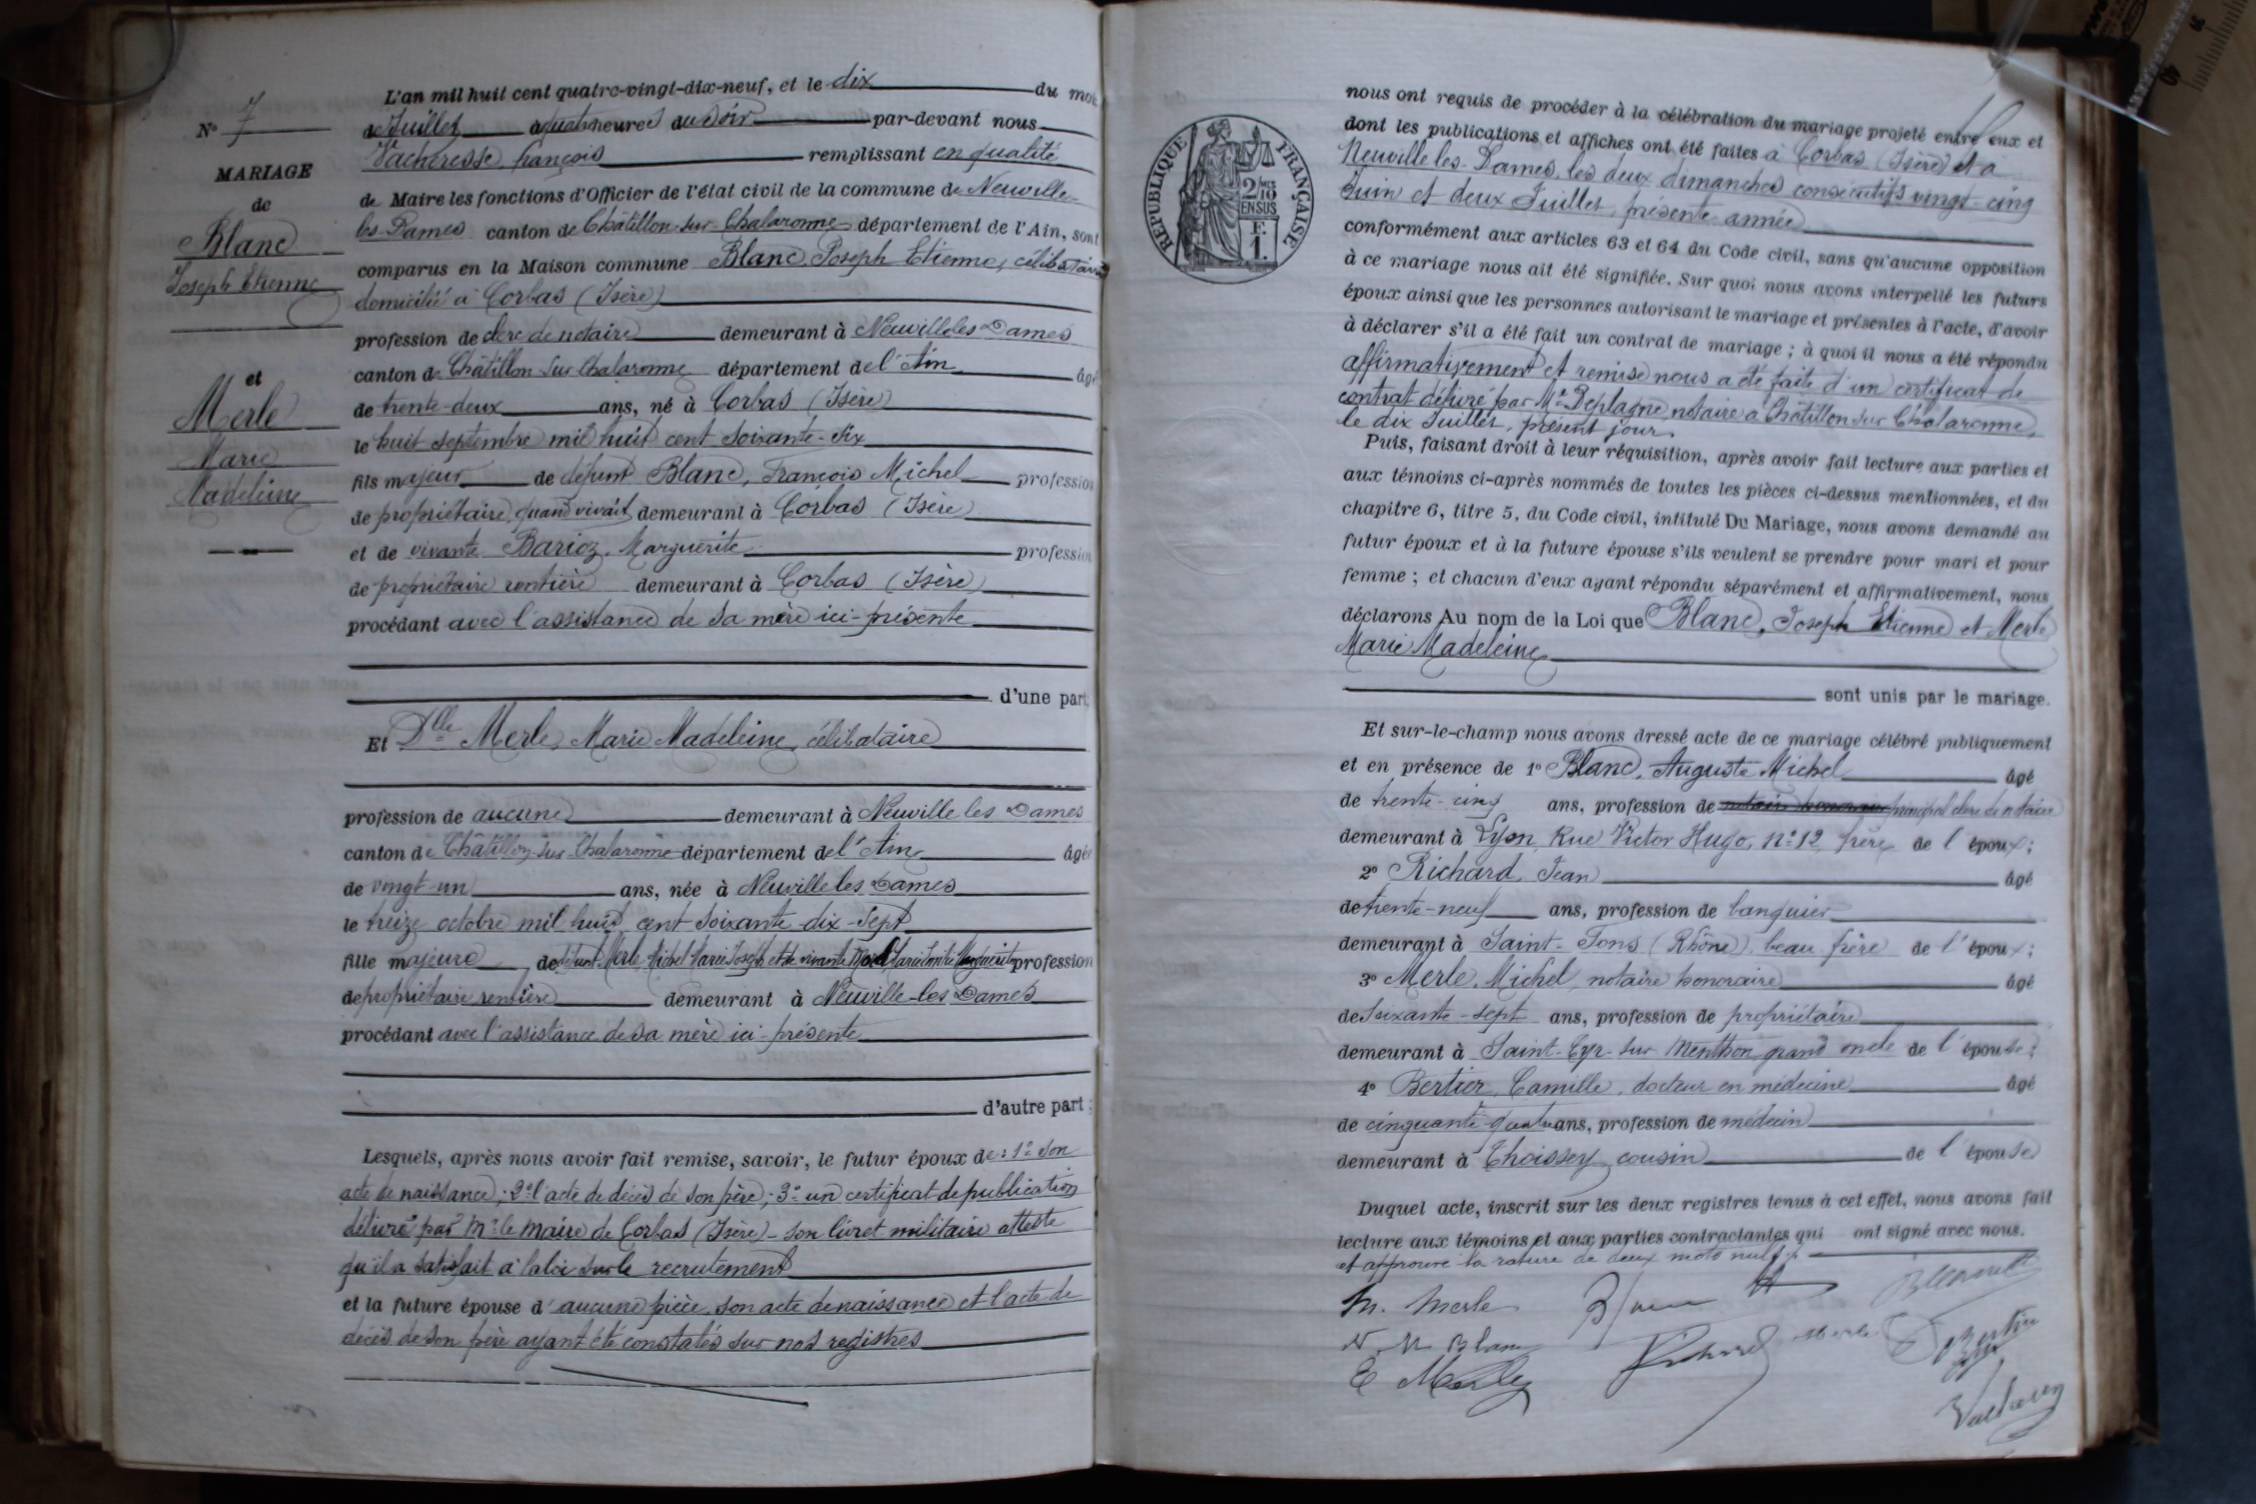 N° 7
MARIAGE
de
Blanc
Joseph Etienne
et
Merle
Marie
Madeleine
L'an mil huit cent quatre-vingt-dix-neuf, et le dix du mois
de Juillet à quatre heures du soir par-devant nous
Vacheresse, françois remplissant en qualité
de Maire les fonctions d'Officier de l'état civil de la commune de Neuville-
les-Dames canton de Châtillon-sur-Chalaronne département de l'Ain, sont
comparus en la Maison commune Blanc, Joseph Etienne, célibataire
domicilié à Corbas (Isère)
profession de clerc de notaire demeurant à Neuville les Dames
canton de Châtillon sur Chalaronne département de l'Ain âgé
de trente-deux ans, né à Corbas (Isère)
le huit septembre mil huit cent soixante-six
fils majeur de défunt Blanc, François Michel profession
de propriétaire quand vivait demeurant à Corbas (Isère)
et de vivante Barioz, Marguerite profession
de propriétaire rentière demeurant à Corbas (Isère)
procédant avec l'assistance de sa mère ici-présente
d'une part
Et Dlle Merle, Marie Madeleine, célibataire
profession de aucune demeurant à Neuville les Dames
canton de Châtillon-sur-Chalaronne département de l'Ain âgée
de vingt-un ans, née à Neuville les Dames
le treize octobre mil huit cent soixante-dix-sept
fille majeure de défunt Merle Michel Marie Joseph et de vivante Marguerite profession
de propriétaire rentière demeurant à Neuville-les-Dames
procédant avec l'assistance de sa mère ici-présente
d'autre part ;
Lesquels, après nous avoir fait remise, savoir, le futur époux de : 1° son
acte de naissance ; 2° l'acte de décès de son père ; 3° un certificat de publication
délivré par Mr le maire de Corbas (Isère) - son livret militaire atteste
qu'il a satisfait à la loi sur le recrutement
et la future épouse d'aucune pièce, son acte de naissance et l'acte de
décès de son père ayant été constatés sur nos registres
RÉPUBLIQUE FRANÇAISE
2/10
EN SUS
F.
1.
nous ont requis de procéder à la célébration du mariage projeté entre eux et
dont les publications et affiches ont été faites à Corbas (Isère) et à
Neuville les-Dames, les deux dimanches consécutifs vingt-cinq
Juin et deux Juillet, présente année
conformément aux articles 63 et 64 du Code civil, sans qu'aucune opposition
à ce mariage nous ait été signifiée. Sur quoi nous avons interpellé les futurs
époux ainsi que les personnes autorisant le mariage et présentes à l'acte, d'avoir
à déclarer s'il a été fait un contrat de mariage ; à quoi il nous a été répondu
affirmativement et remise nous a été faite d'un certificat de
contrat délivré par Me Deplagne notaire à Châtillon sur Chalaronne,
le dix Juillet, présent jour.
Puis, faisant droit à leur réquisition, après avoir fait lecture aux parties et
aux témoins ci-après nommés de toutes les pièces ci-dessus mentionnées, et du
chapitre 6, titre 5, du Code civil, intitulé Du Mariage, nous avons demandé au
futur époux et à la future épouse s'ils veulent se prendre pour mari et pour
femme ; et chacun d'eux ayant répondu séparément et affirmativement, nous
déclarons Au nom de la Loi que Blanc, Joseph Etienne et Merle
Marie Madeleine
sont unis par le mariage.
Et sur-le-champ nous avons dressé acte de ce mariage célébré publiquement
et en présence de 1° Blanc, Auguste Michel âgé
de trente-cinq ans, profession de notaire honoraire principal clerc de notaire
demeurant à Lyon, Rue Victor Hugo, n° 12, frère de l'époux ;
2° Richard, Jean âgé
de trente-neuf ans, profession de banquier
demeurant à Saint-Fons (Rhône), beau frère de l'époux ;
3° Merle, Michel, notaire honoraire âgé
de soixante-sept ans, profession de propriétaire
demeurant à Saint-Cyr-sur-Menthon, grand oncle de l'épouse ;
4° Bertier, Camille, docteur en médecine âgé
de cinquante-quatre ans, profession de médecin
demeurant à Thoissey, cousin de l'épouse
Duquel acte, inscrit sur les deux registres tenus à cet effet, nous avons fait
lecture aux témoins et aux parties contractantes qui ont signé avec nous.
et approuvé la rature de deux mots nuls.
M. Merle
M Blanc
E Merle
Richard
Merle